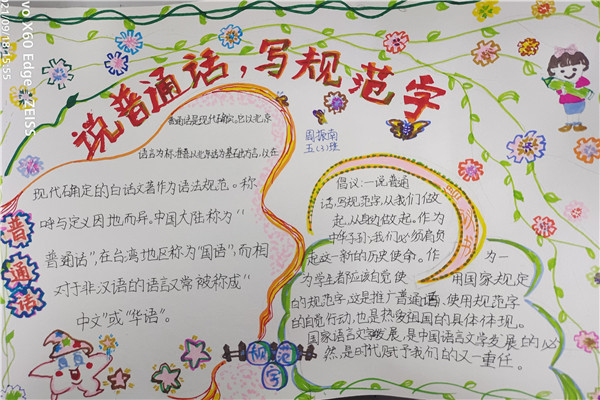 vo X60 Edge | ZEISS
21/09/18 15:55
说普通话，写规范字
周振南
五(3)班
普通话是现代确定。它以北京
语言为标准音以北京话为基石出方言，以在
现代确定的白话文著作为语法规范。称
呼与定义因地而异。中国大陆称为“
普通话”，在台湾地区称为“国语”，而相
对于非汉语的语言又常被称成“
中文”或“华语”。
普
通
话
规
范
字
倡议：一说普通
话，写规范字，从我们做
起，从身边做起。作为
中华子孙，我们必须肩负
起这一新的历史使命。作为一
为学生者应该自觉使用国家规定
的规范字，这是推广普通话、使用规范字
的自觉行动，也是热爱祖国的具体体现。
国家语言文字发展，是中国语言文学发展的必
然，是时代赋予我们的又一重任。